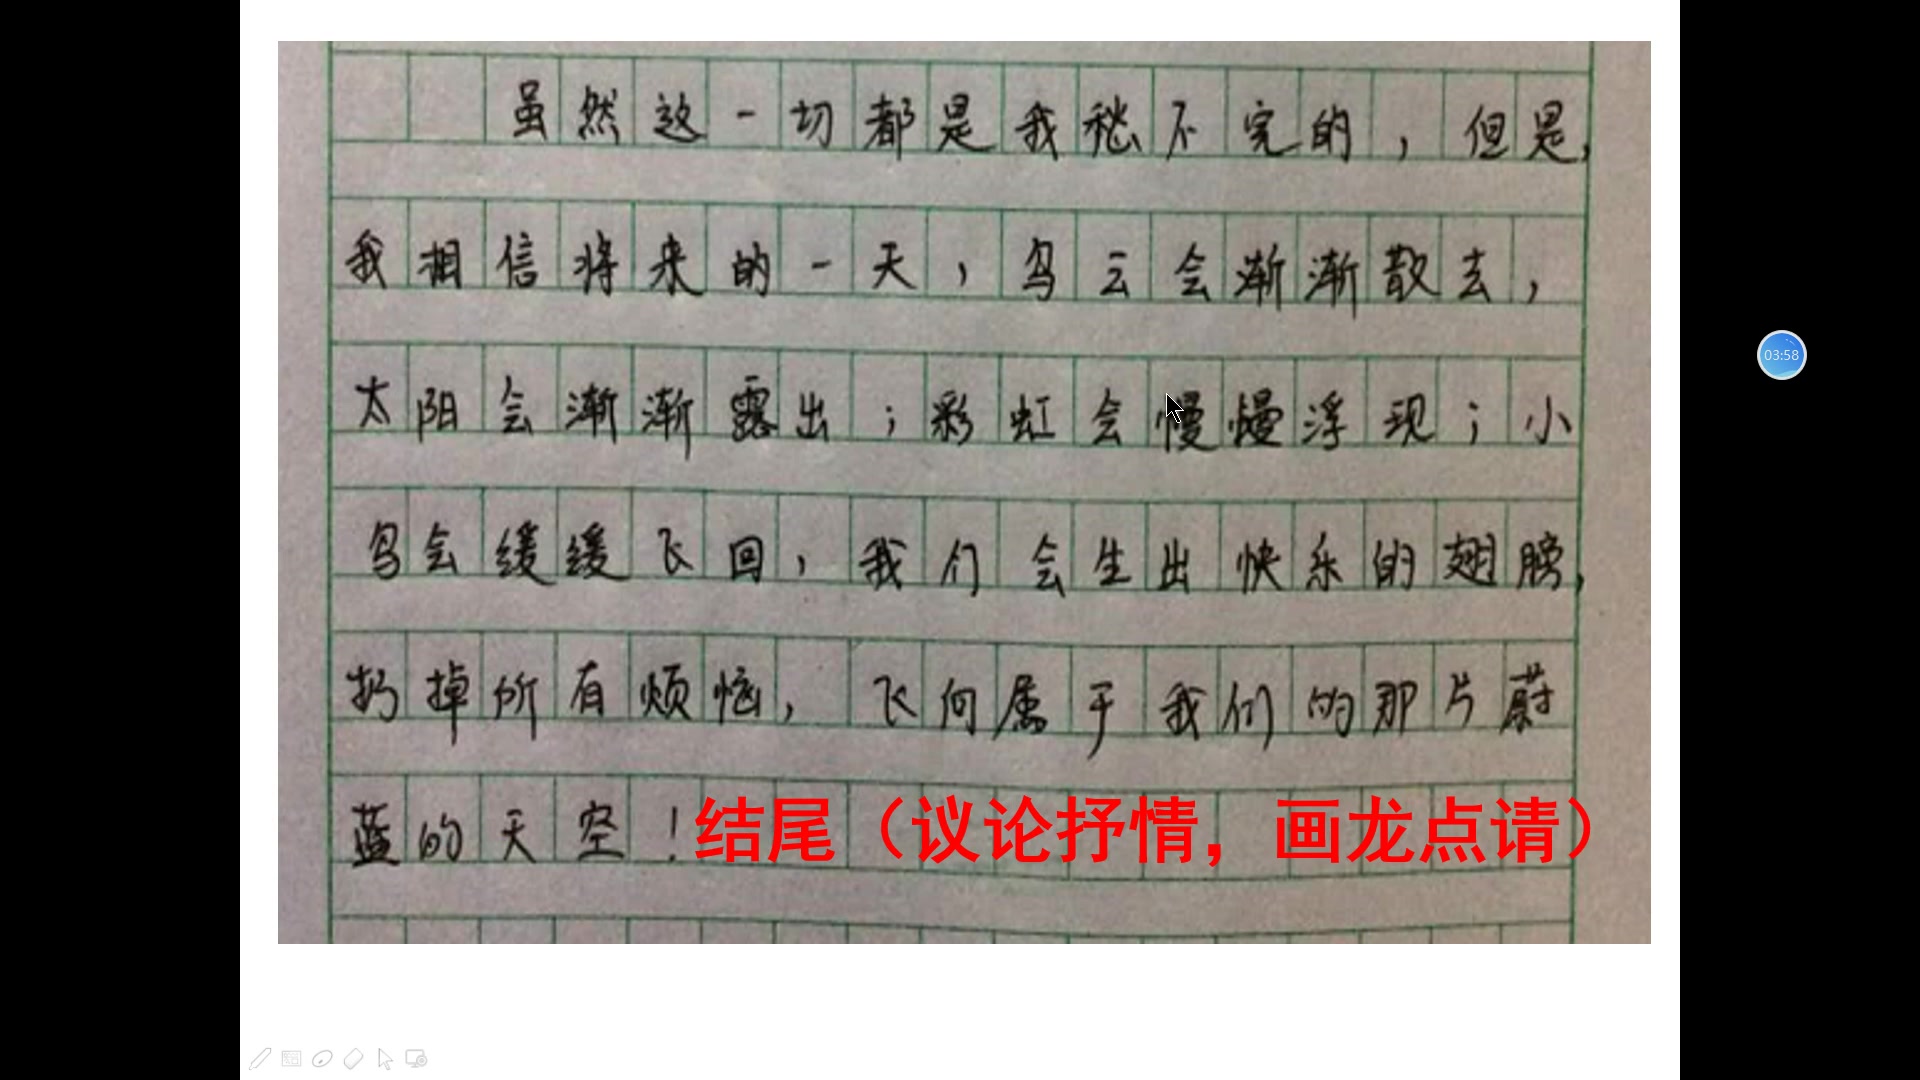 虽然这一切都是我愁不完的，但是，
我相信将来的一天，乌云会渐渐散去，
太阳会渐渐露出；彩虹会慢慢浮现；小
鸟会缓缓飞回，我们会生出快乐的翅膀，
扔掉所有烦恼，飞向属于我们的那片蔚
蓝的天空！
结尾（议论抒情，画龙点请）
03:58